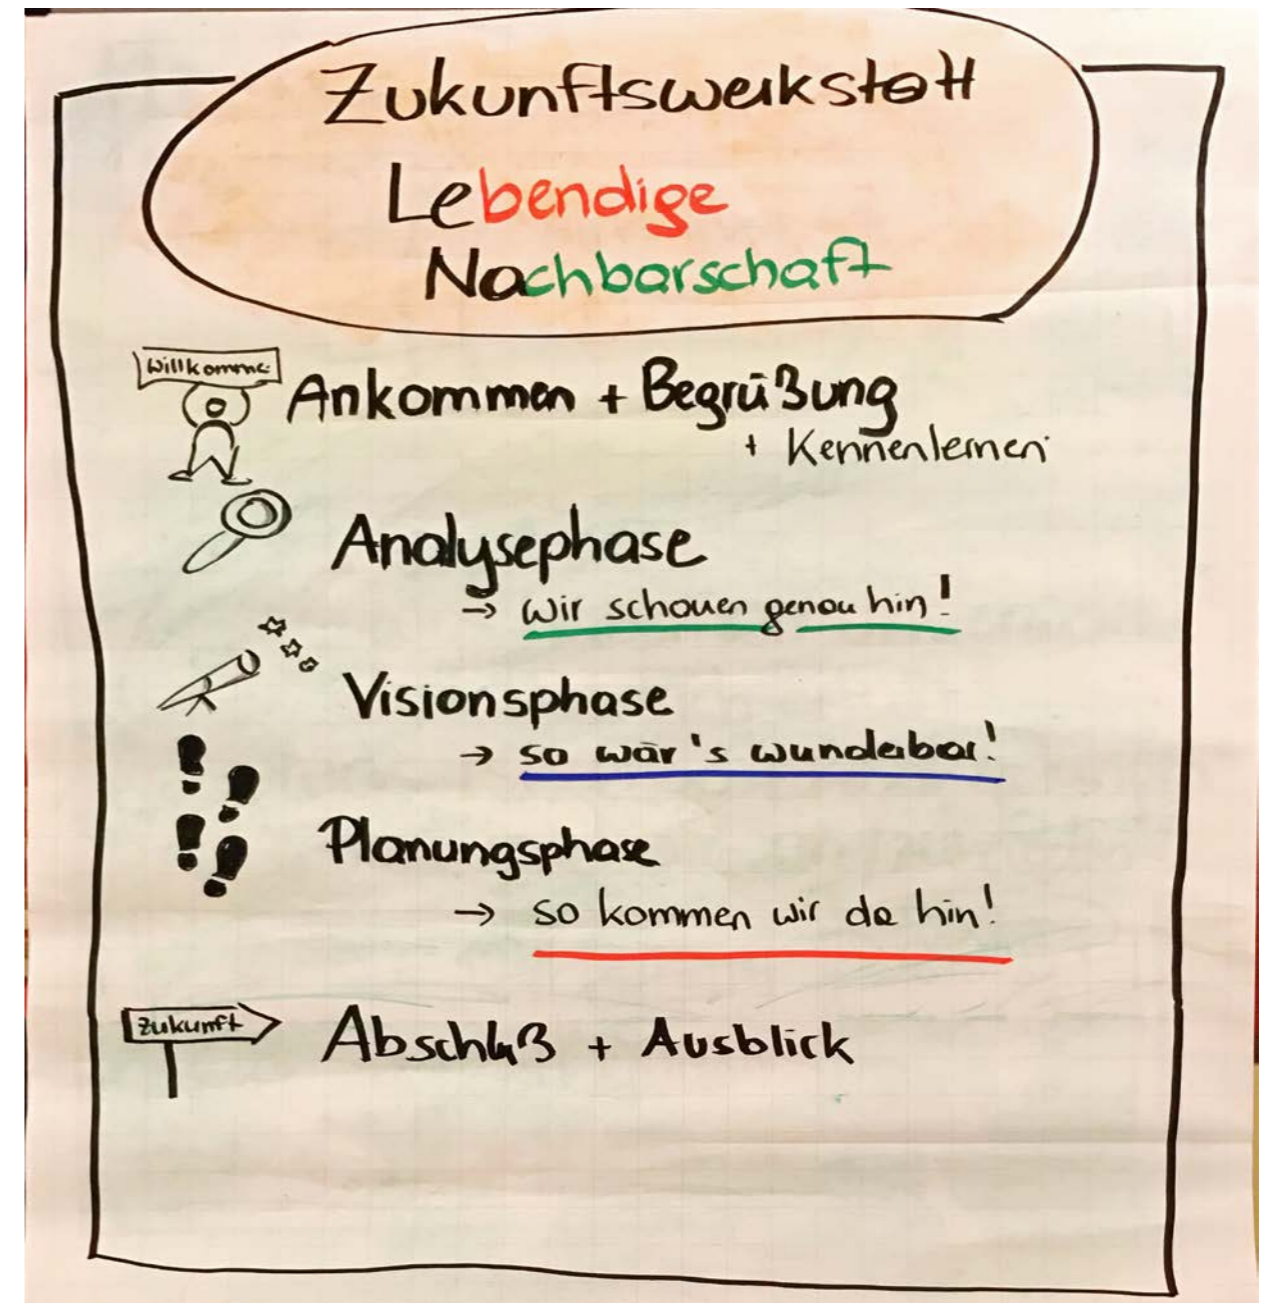 Zukunftswerkstatt
Lebendige
Nachbarschaft
Willkomme
Ankommen + Begrüßung
+ Kennenlernen
Analysephase
→ Wir schauen genau hin!
Visionsphase
→ so wär's wunderbar!
Planungsphase
→ so kommen wir da hin!
Zukunft
Abschluß + Ausblick